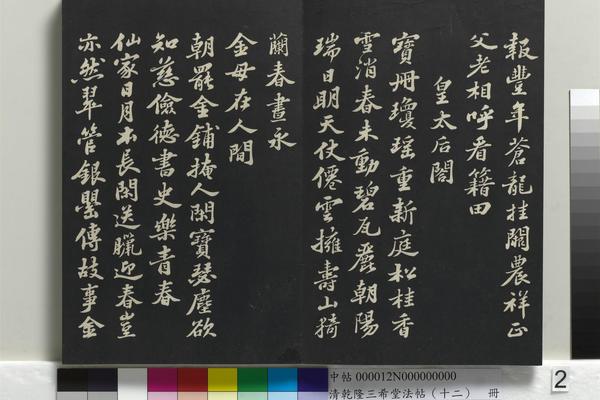 報豐年蒼龍挂闕農祥正
父老相呼看籍田
皇太后閤
寶冊瓊瑤重新庭松桂香
雪消春未動碧瓦麗朝陽
瑞日明天仗僊雲擁壽山猗
蘭春晝永
金母在人間
朝罷金鋪掩人閑寶瑟塵欲
知慈儉德書史樂青春
仙家日月本長閑送臘迎春豈
亦然翠管銀罌傳故事金
中帖 000012N000000000
清乾隆三希堂法帖（十二） 冊
2